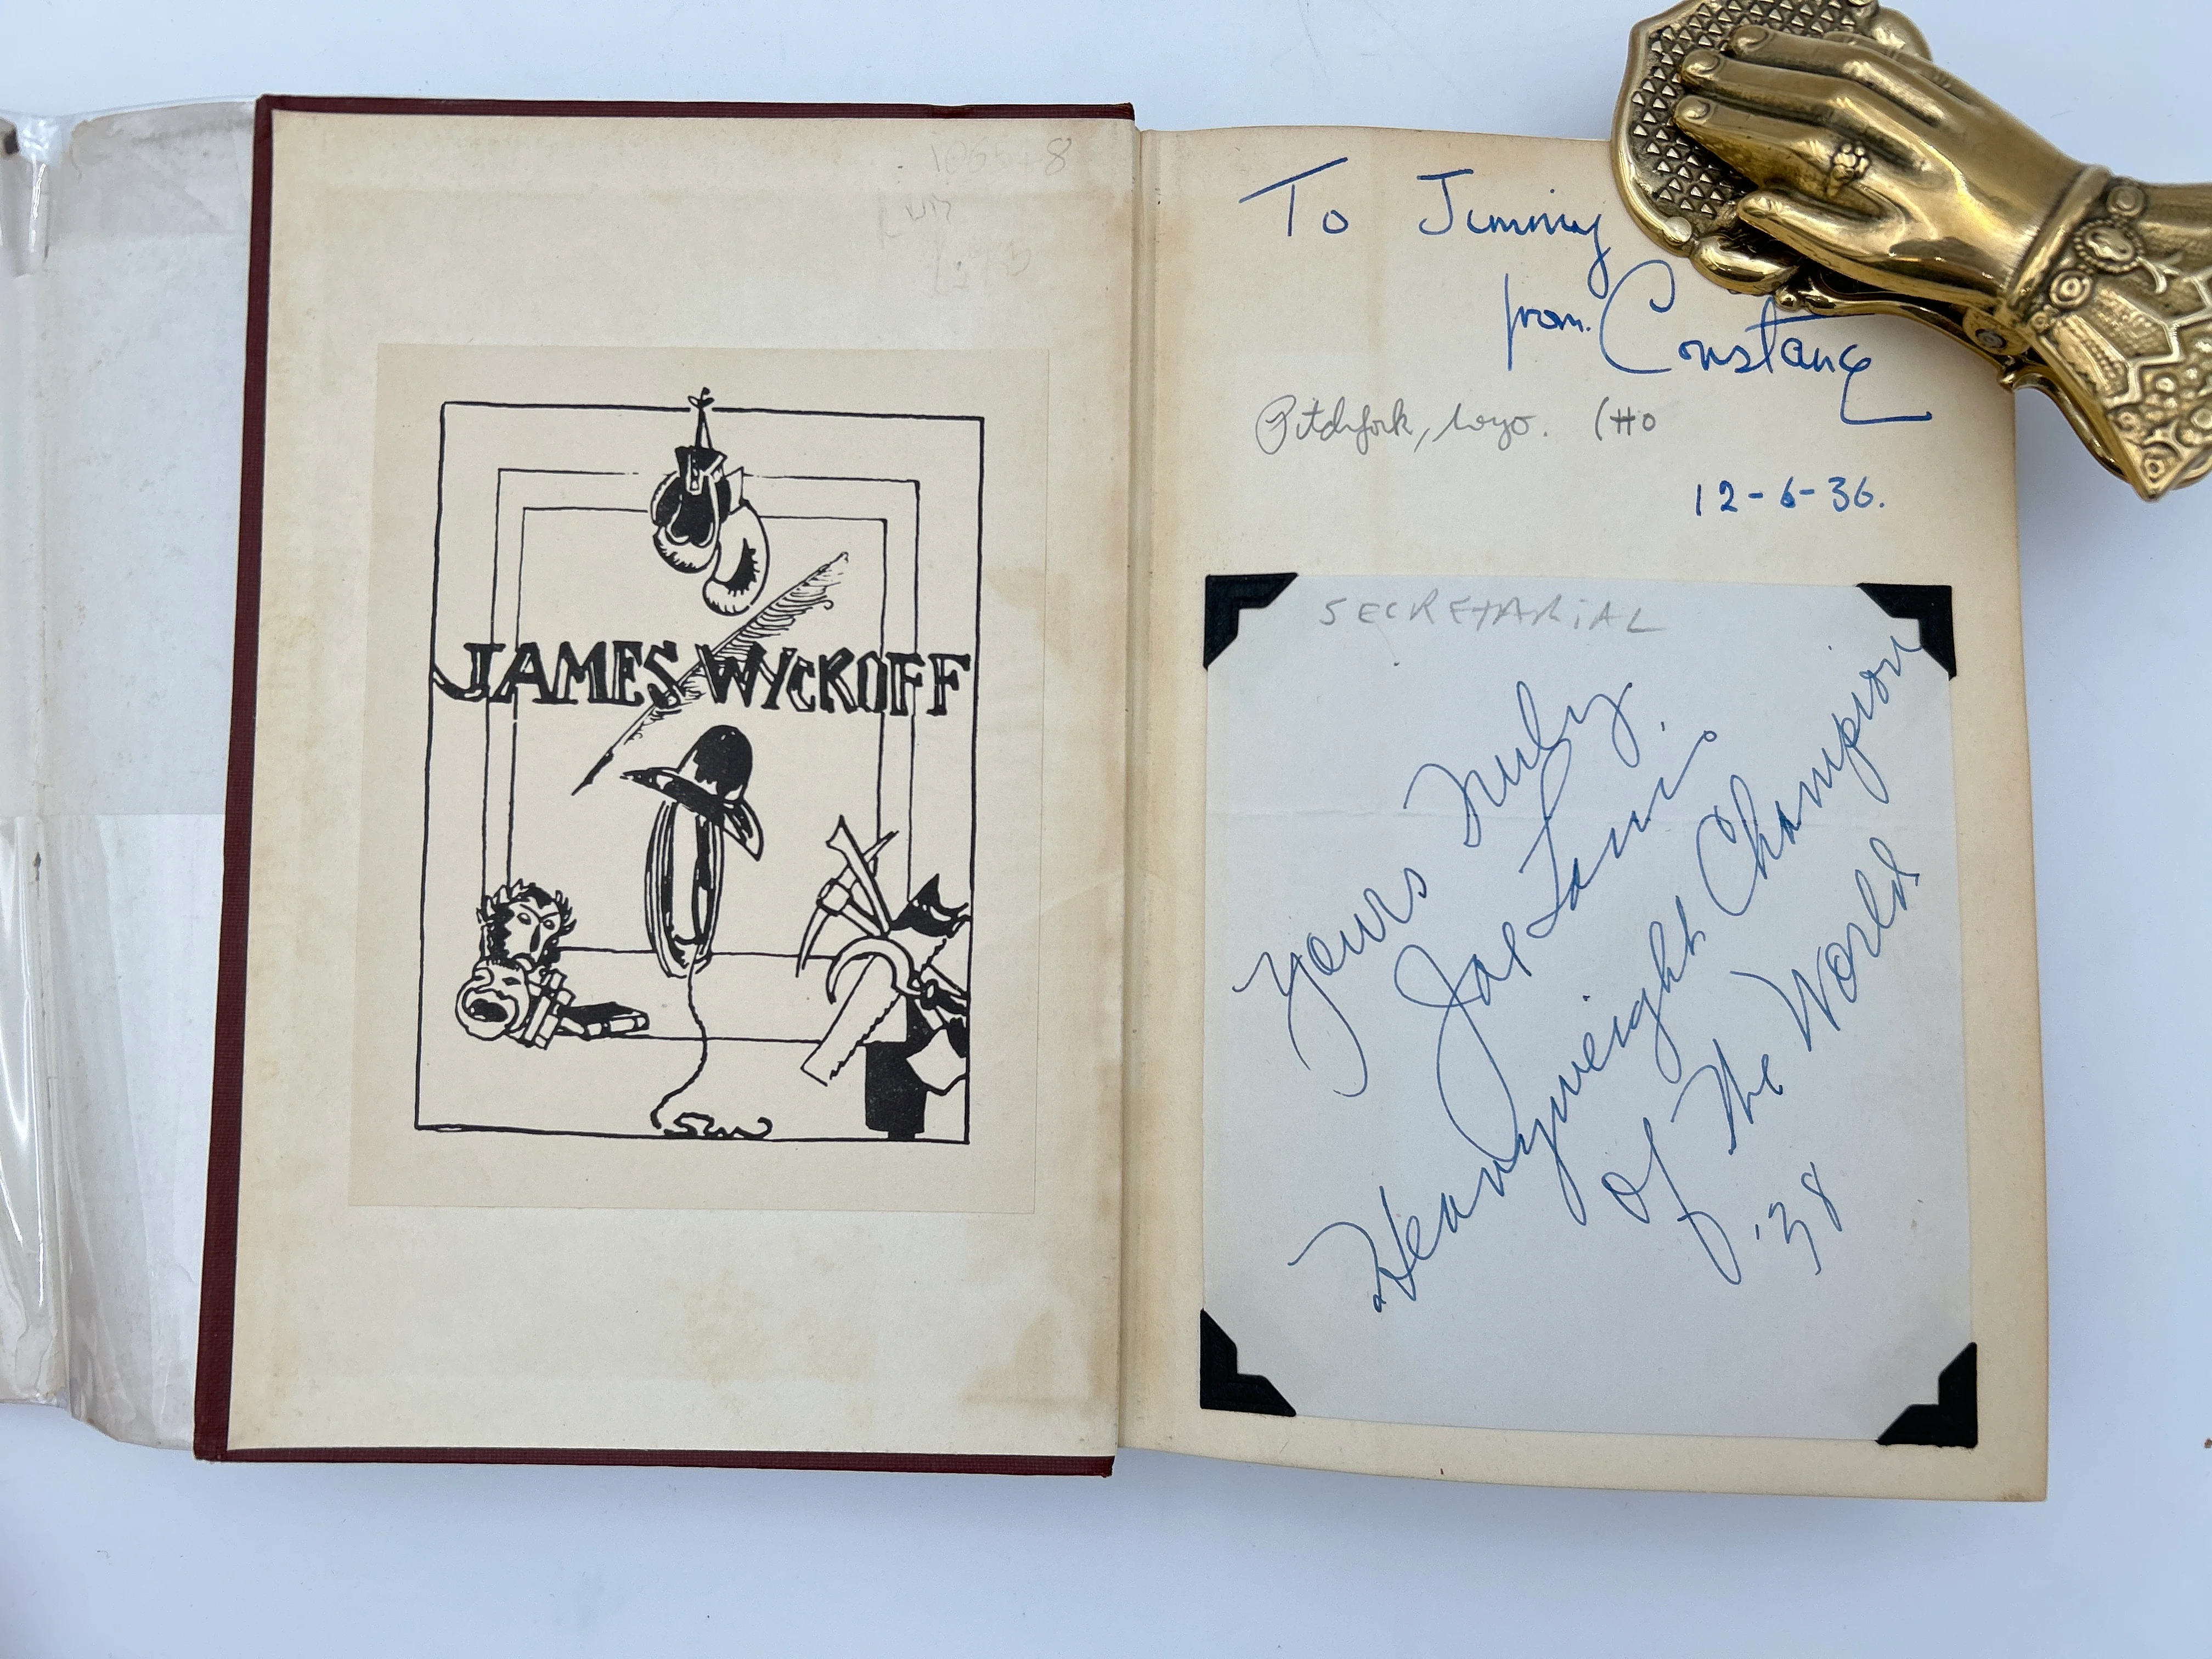 JAMES WYCKOFF
To Jimmy
from Constance
Pitchfork, Wyo. (HO
12-6-36.
SECRETARIAL
Yours Truly
Joe Louis
Heavyweight Champion
of The World
'38